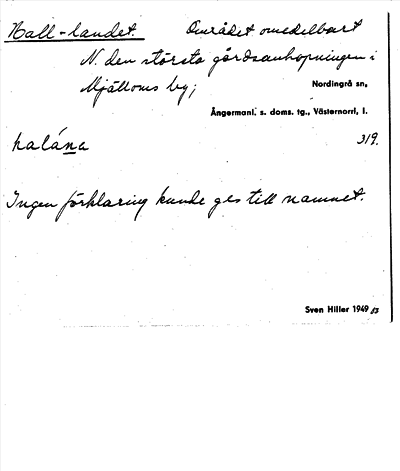 Kall-landet. Området omedelbart
N. den största gårdsanhopningen i
Mjälloms by; Nordingrå sn,
Ångermanl. s. doms. tg., Västernorrl, l.
kalána 319.
Ingen förklaring kunde ges till namnet.
Sven Hiller 1949